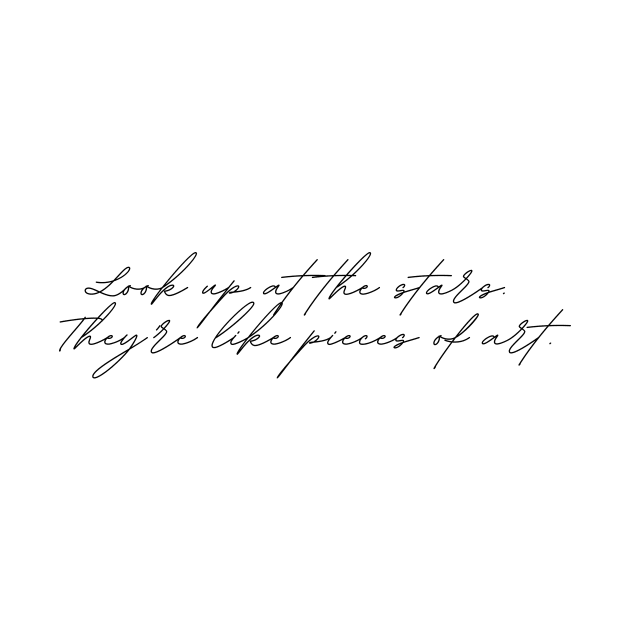 Look up at the stars.
They're like pieces of art.